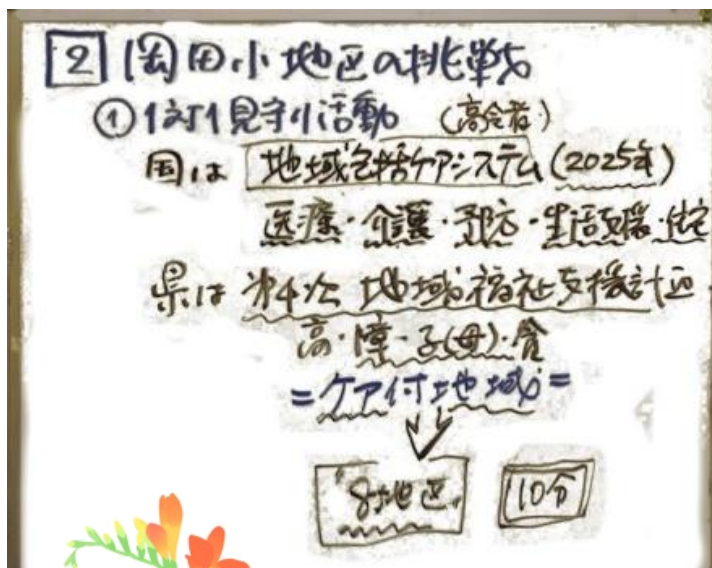 2 岡田小地区の挑戦
① 1対1見守り活動 (高令者)
国は 地域包括ケアシステム (2025年)
医療・介護・予防・生活支援・住宅
県は 第4次 地域福祉支援計画
高・障・子(母)・貧
=ケア付地域=
「8地区」 10分